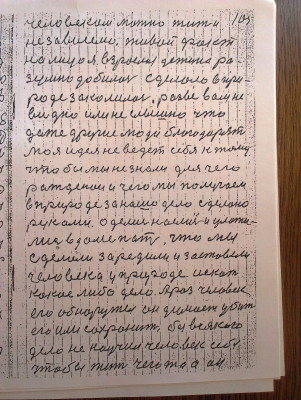 105
человеком можно жить и
независемо, живой факт
на лицо я взрослая детина ра-
зумно добилась сделало в при-
роде закалилась, разве вам не
видно или не слышно что
даже другие люди благодарят
моя идея не ведет себя к тому
что бы мы не знали для чего
рождении и чего мы получаем
в природе за нашо дело сделано
руками. О деле нашей и
лиц вдоме пату, что мы
сделали зародили и заставели
человека у природе искать
какое либо дело. А раз человек
его обнаружил он думает убить
его или сохранить бы всякого
дело не научил человек себя
чтобы жит чего то а он